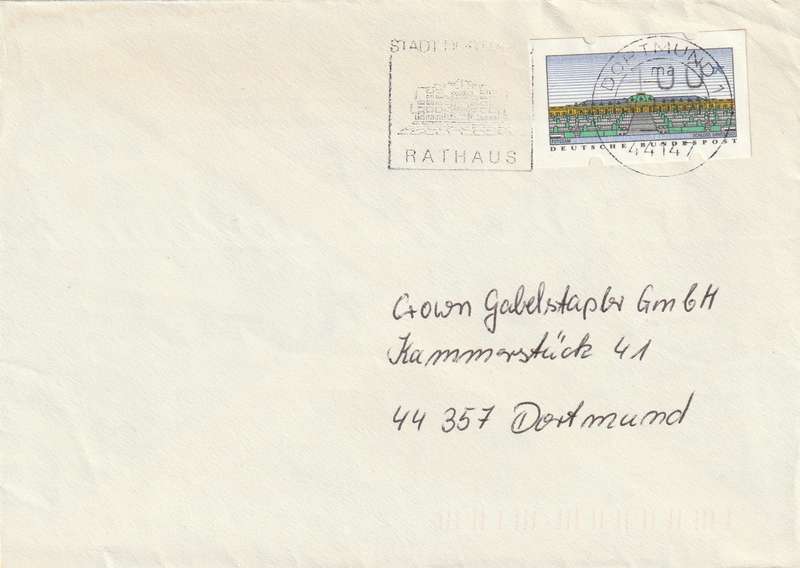 STADT DORTMUND
RATHAUS
DORTMUND 1
44147
100
DEUTSCHE BUNDESPOST
Crown Gabelstapler GmbH
Kammerstück 41
44 357 Dortmund